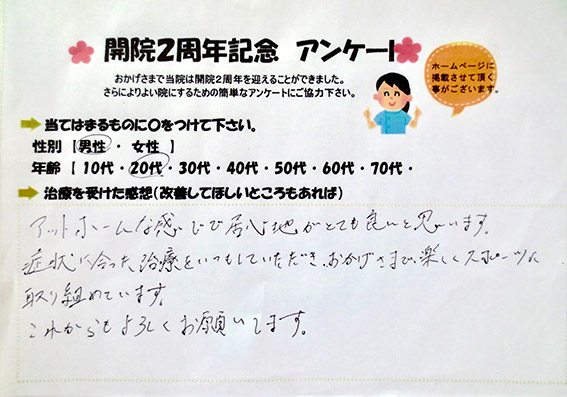 開院2周年記念 アンケート
おかげさまで当院は開院2周年を迎えることができました。
さらによりよい院にするための簡単なアンケートにご協力下さい。
ホームページに
掲載させて頂く
事がございます。
当てはまるものに○をつけて下さい。
性別 【 男性 ・ 女性 】
年齢 【 10代・20代・30代・40代・50代・60代・70代・
治療を受けた感想(改善してほしいところもあれば)
アットホームな感じで居心地がとても良いと思います。
症状に合った治療をいつもしていただき、おかげさまで、楽しくスポーツに
取り組めています。
これからもよろしくお願いします。